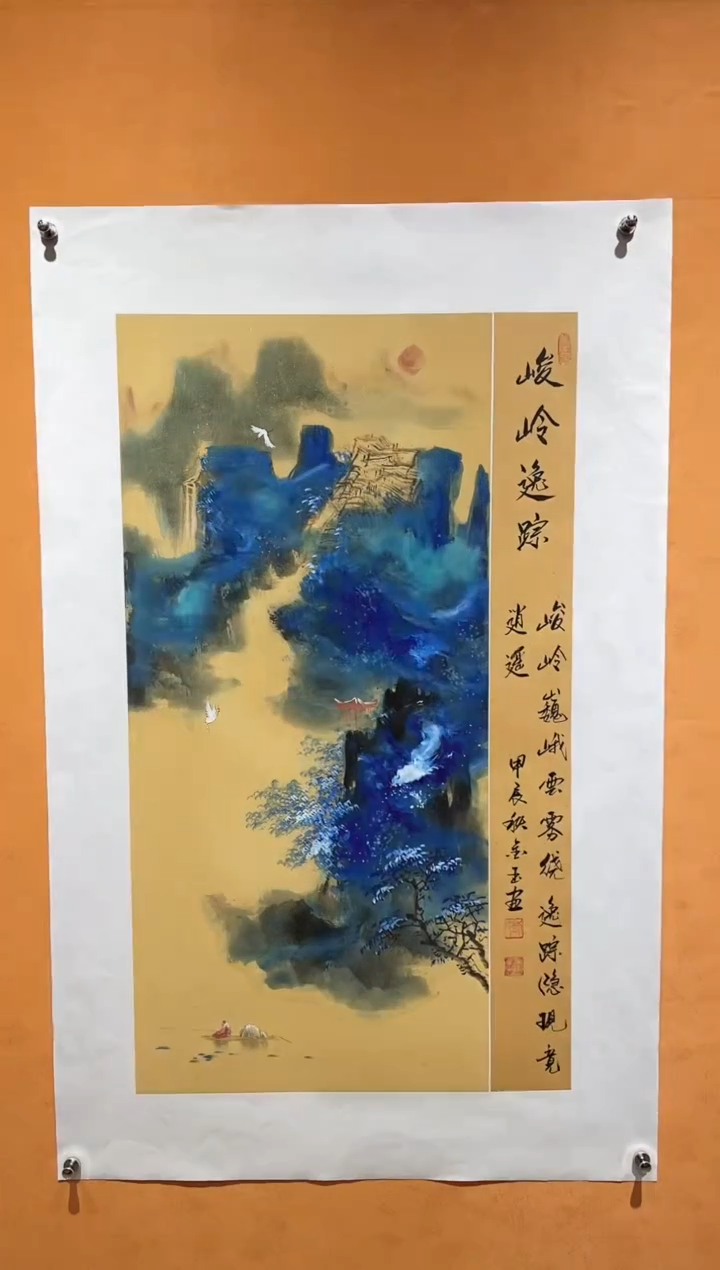 峻岭逸踪
峻岭巍峨雲雾绕逸踪隐现竟
逍遥
甲辰秋金玉画